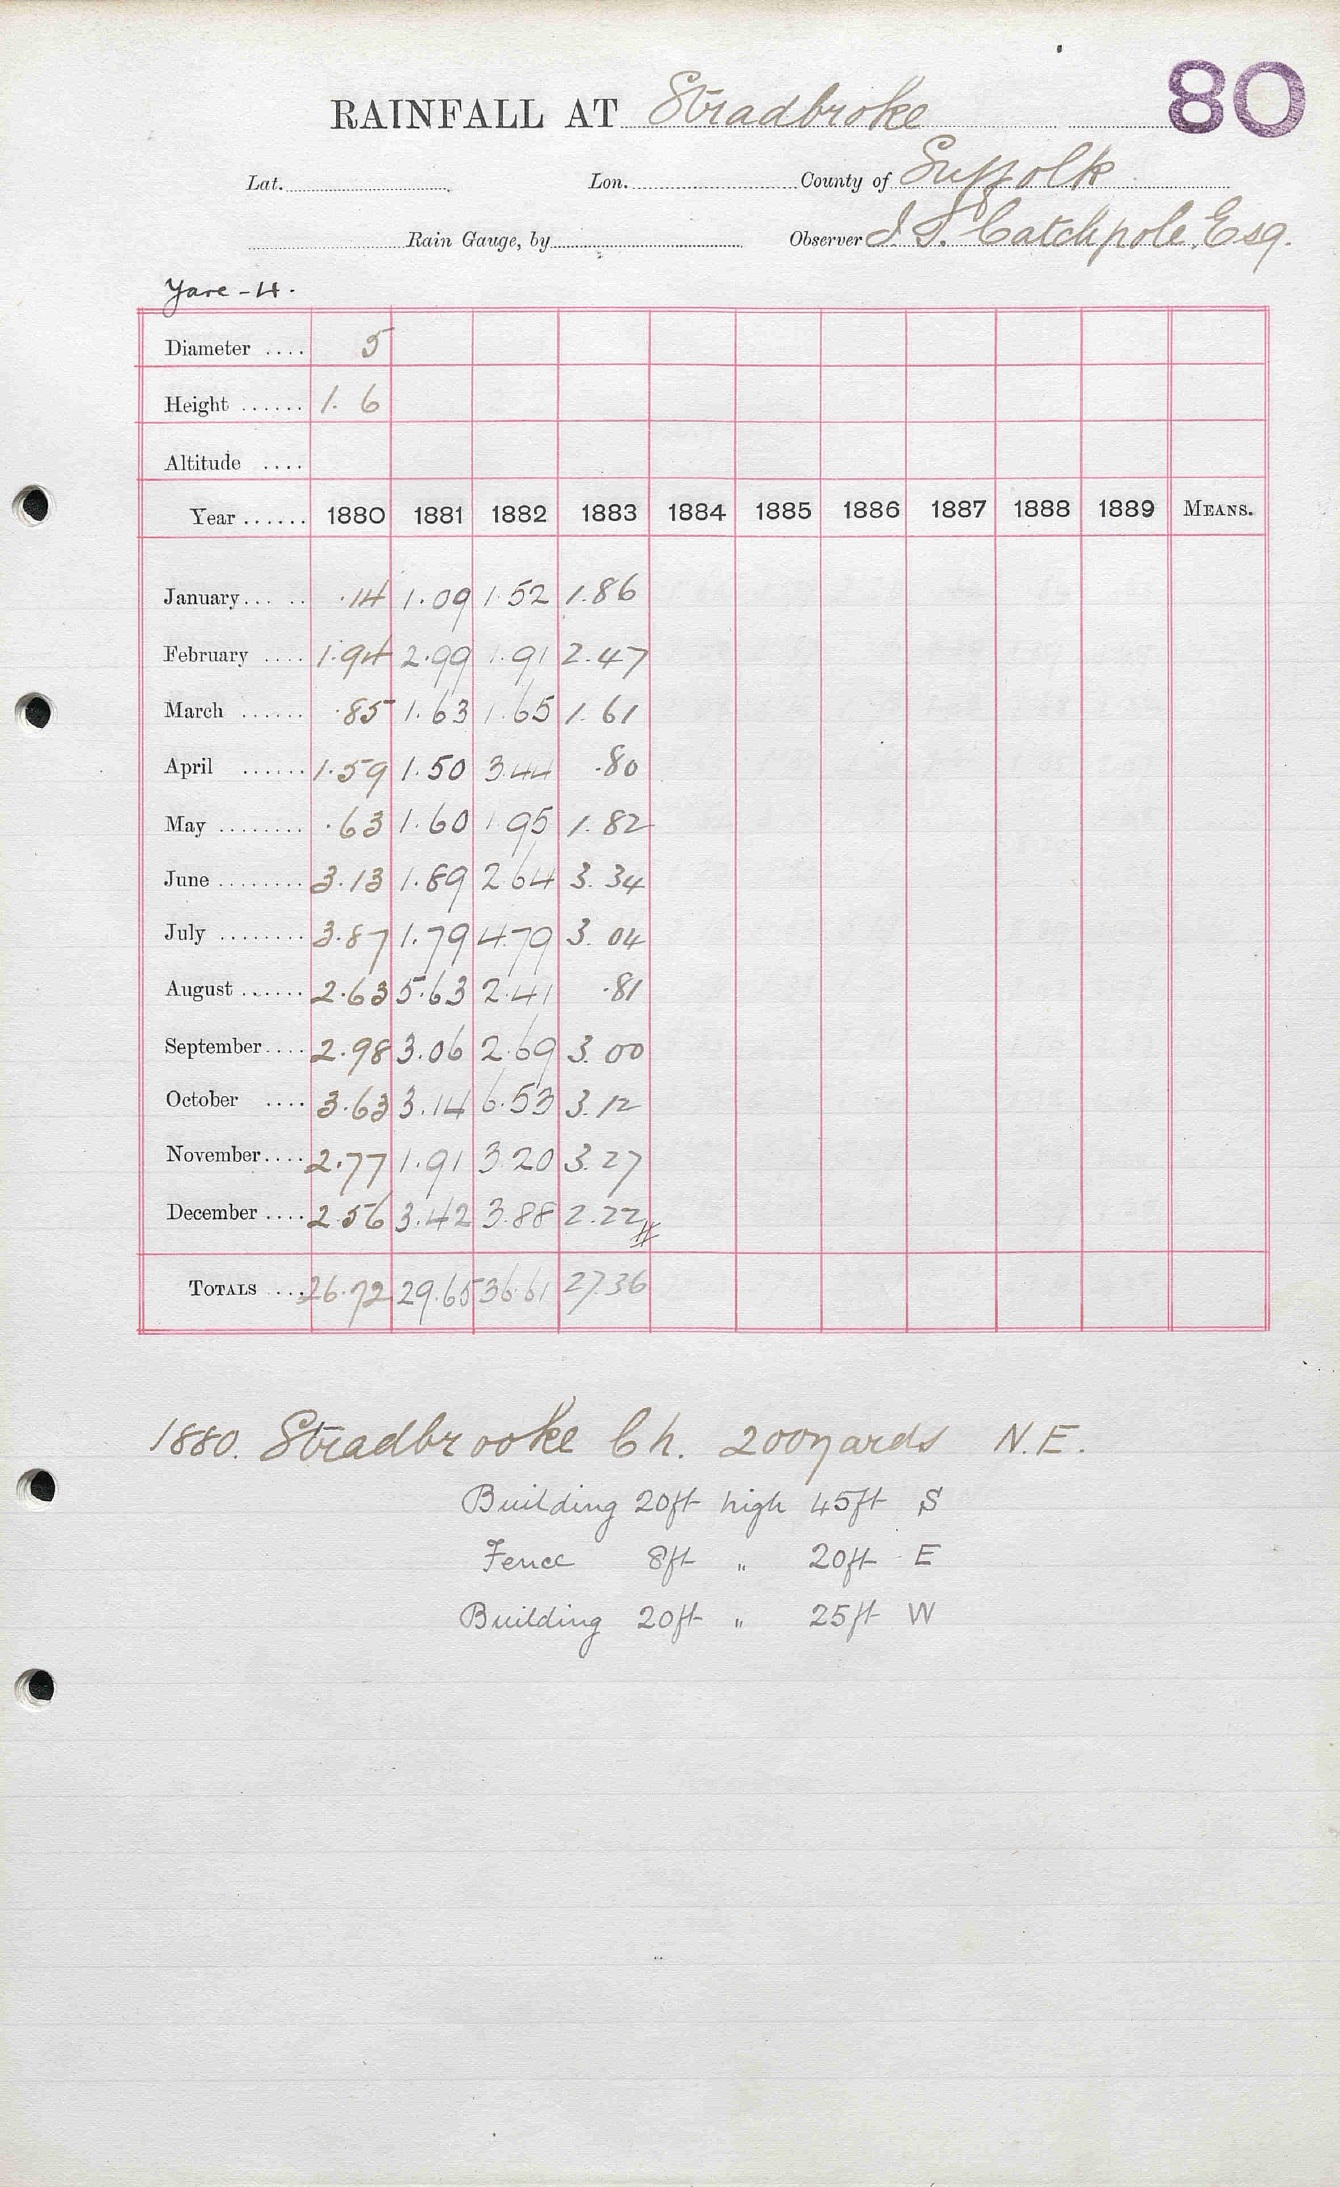 80
RAINFALL AT Stradbroke
Lat. Lon. County of Suffolk
Rain Gauge, by Observer J. S. Catchpole, Esq.
Yare - 4.
Diameter .... 5
Height ...... 1. 6
Altitude ....
Year ...... 1880 1881 1882 1883 1884 1885 1886 1887 1888 1889 MEANS.
January... .. .14 1.09 1.52 1.86
February .... 1.94 2.99 1.91 2.47
March ...... .85 1.63 1.65 1.61
April ...... 1.59 1.50 3.44 .80
May ........ .63 1.60 1.95 1.82
June ........ 3.13 1.89 2.64 3.34
July ........ 3.87 1.79 4.79 3.04
August ...... 2.63 5.63 2.41 .81
September.... 2.98 3.06 2.69 3.00
October .... 3.63 3.14 6.53 3.12
November.... 2.77 1.91 3.20 3.27
December .... 2.56 3.42 3.88 2.22
TOTALS .... 26.72 29.65 36.61 27.36
1880. Stradbrooke Ch. 200 yards N.E.
Building 20ft high 45ft S
Fence 8ft " 20ft E
Building 20ft " 25ft W